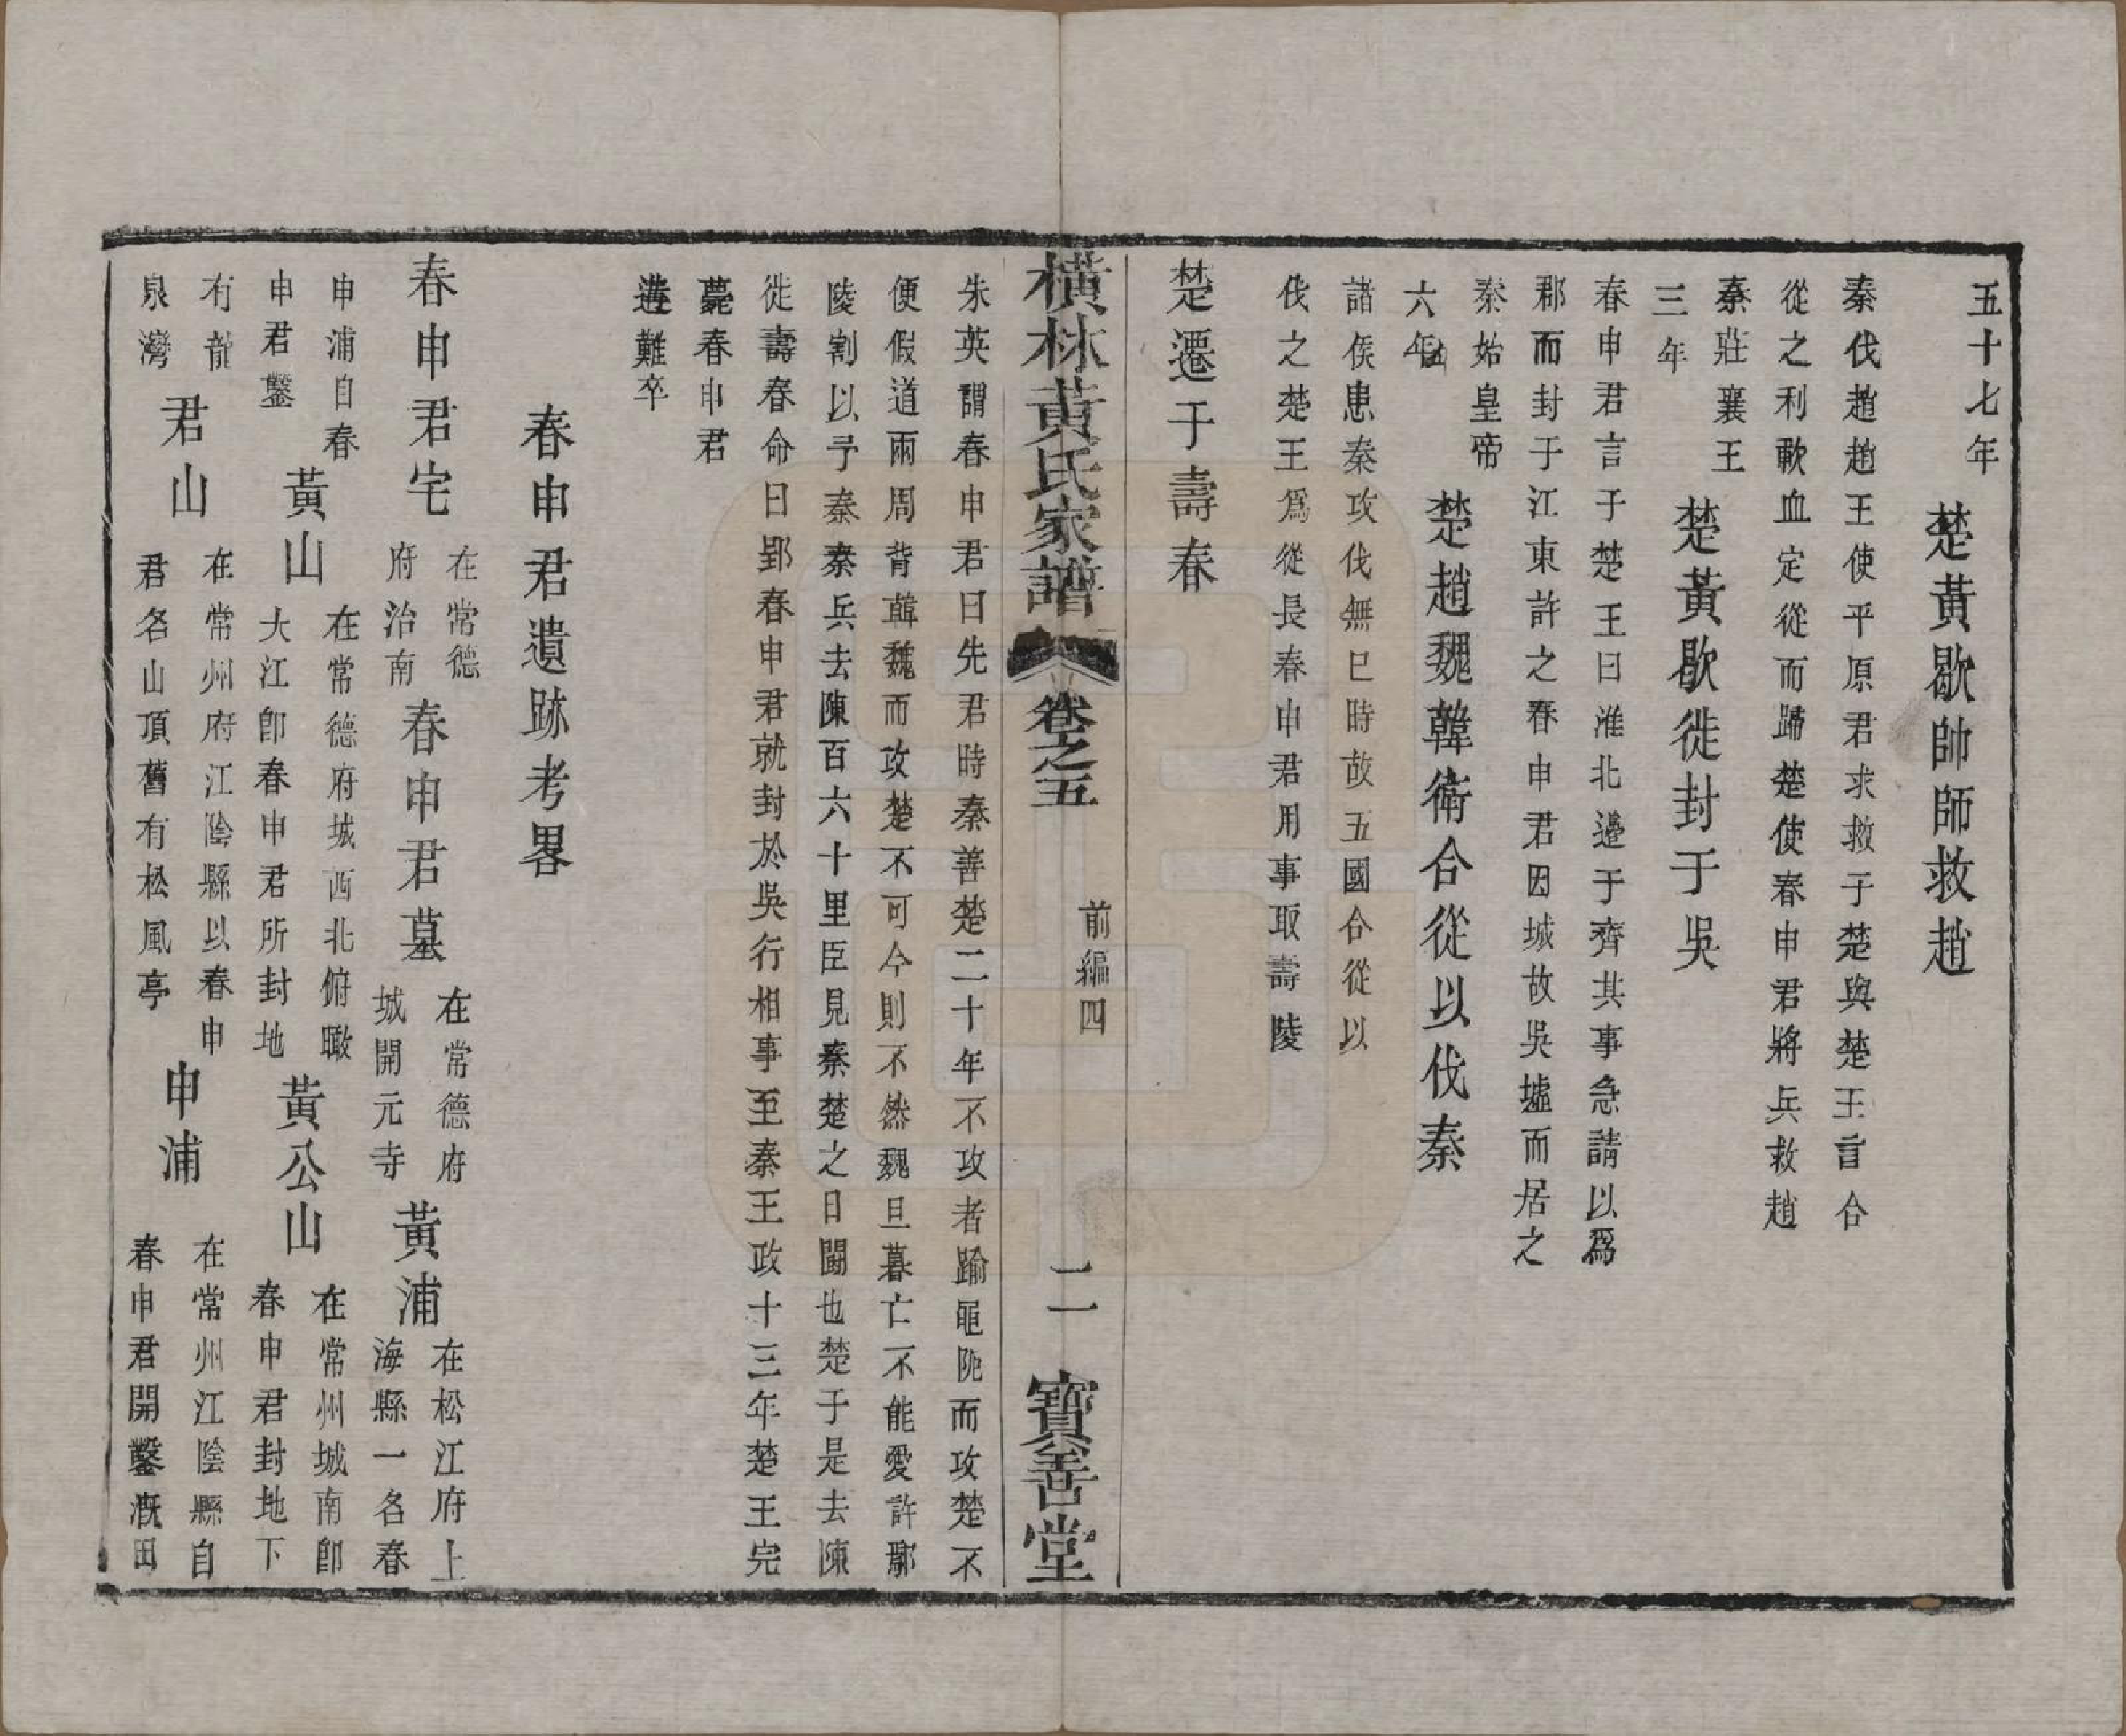 五十七年　楚黃歇帥師救趙
秦伐趙趙王使平原君求救于楚與楚王言合
從之利歃血定從而歸楚使春申君將兵救趙
秦莊襄王
三年　楚黃歇徙封于吳
春申君言于楚王曰淮北邊于齊其事急請以爲
郡而封于江東許之春申君因城故吳墟而居之
秦始皇帝
六年　楚趙魏韓衛合從以伐秦
諸侯患秦攻伐無已時故五國合從以
伐之楚王爲從長春申君用事取壽陵
楚遷于壽春
橫林黃氏家譜　卷之五　前編四　二　寶善堂
朱英謂春申君曰先君時秦善楚二十年不攻者踰黽阸而攻楚不
便假道兩周背韓魏而攻楚不可今則不然魏旦暮亡不能愛許鄢
陵割以予秦秦兵去陳百六十里臣見秦楚之日鬬也楚于是去陳
徙壽春命曰郢春申君就封於吳行相事至秦王政十三年楚王完
薨春申君
遘難卒
春申君遺跡考畧
春申君宅　在常德
府治南　春申君墓　在常德府
城開元寺　黃浦　在松江府上
海縣一名春
申浦自春
申君鑿　黃山　在常德府城西北俯瞰
大江卽春申君所封地　黃公山　在常州城南卽
春申君封地下
有龍
泉灣　君山　在常州府江陰縣以春申
君名山頂舊有松風亭　申浦　在常州江陰縣自
春申君開鑿溉田